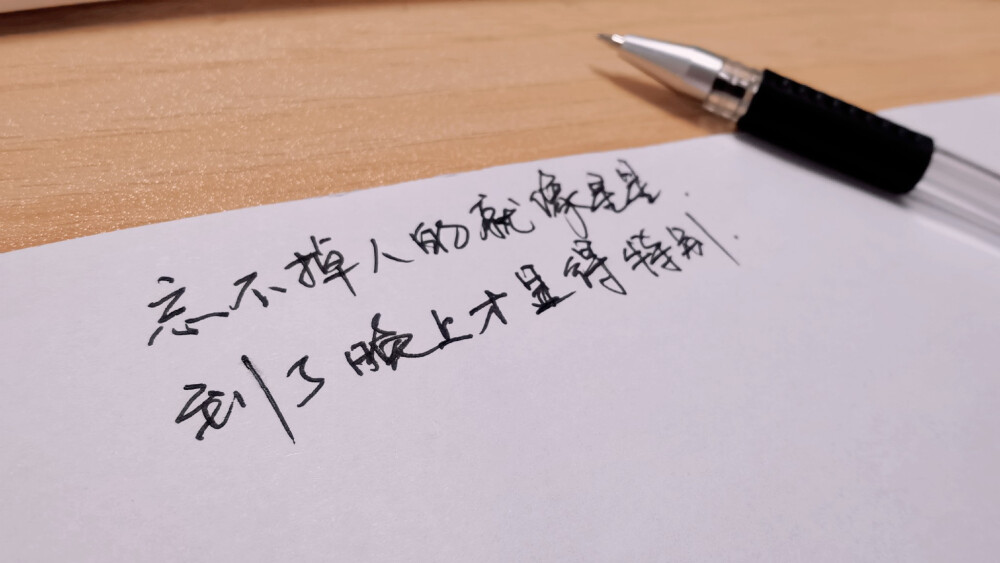 忘不掉人的就像星星.
到了晚上才显得特别.